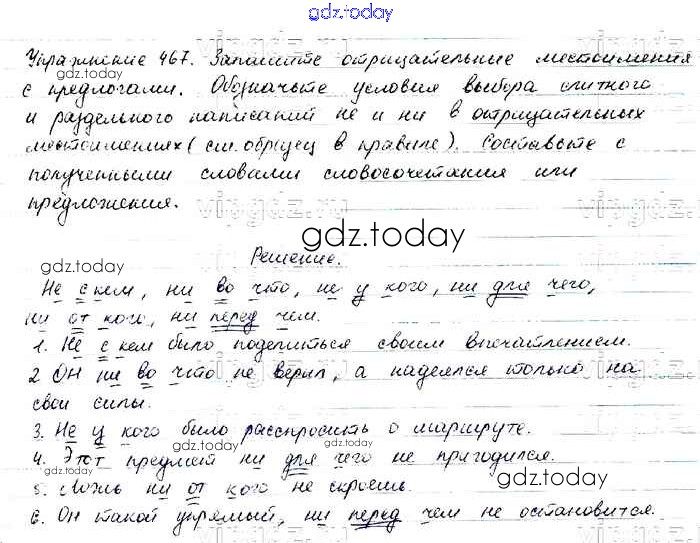 gdz.today
Упражнение 467. Запишите отрицательные местоимения
с предлогами. Обозначьте условия выбора слитного
gdz.today
и раздельного написаний не и ни в отрицательных
местоимениях (см. образец в правиле). Составьте с
полученными словами словосочетания или
предложения.
gdz.today
Решение.
gdz.today
Не с кем, ни во что, не у кого, ни для чего,
ни от кого, ни перед чем.
1. Не с кем было поделиться своим впечатлением.
2 Он ни во что не верил, а надеялся только на
свои силы.
3. Не у кого было расспросить о маршруте.
gdz.today
4. Этот предмет ни для чего не пригодился.
gdz.today
5. Ложь ни от кого не скроешь.
6. Он такой упрямый, ни перед чем не остановится.
gdz.today